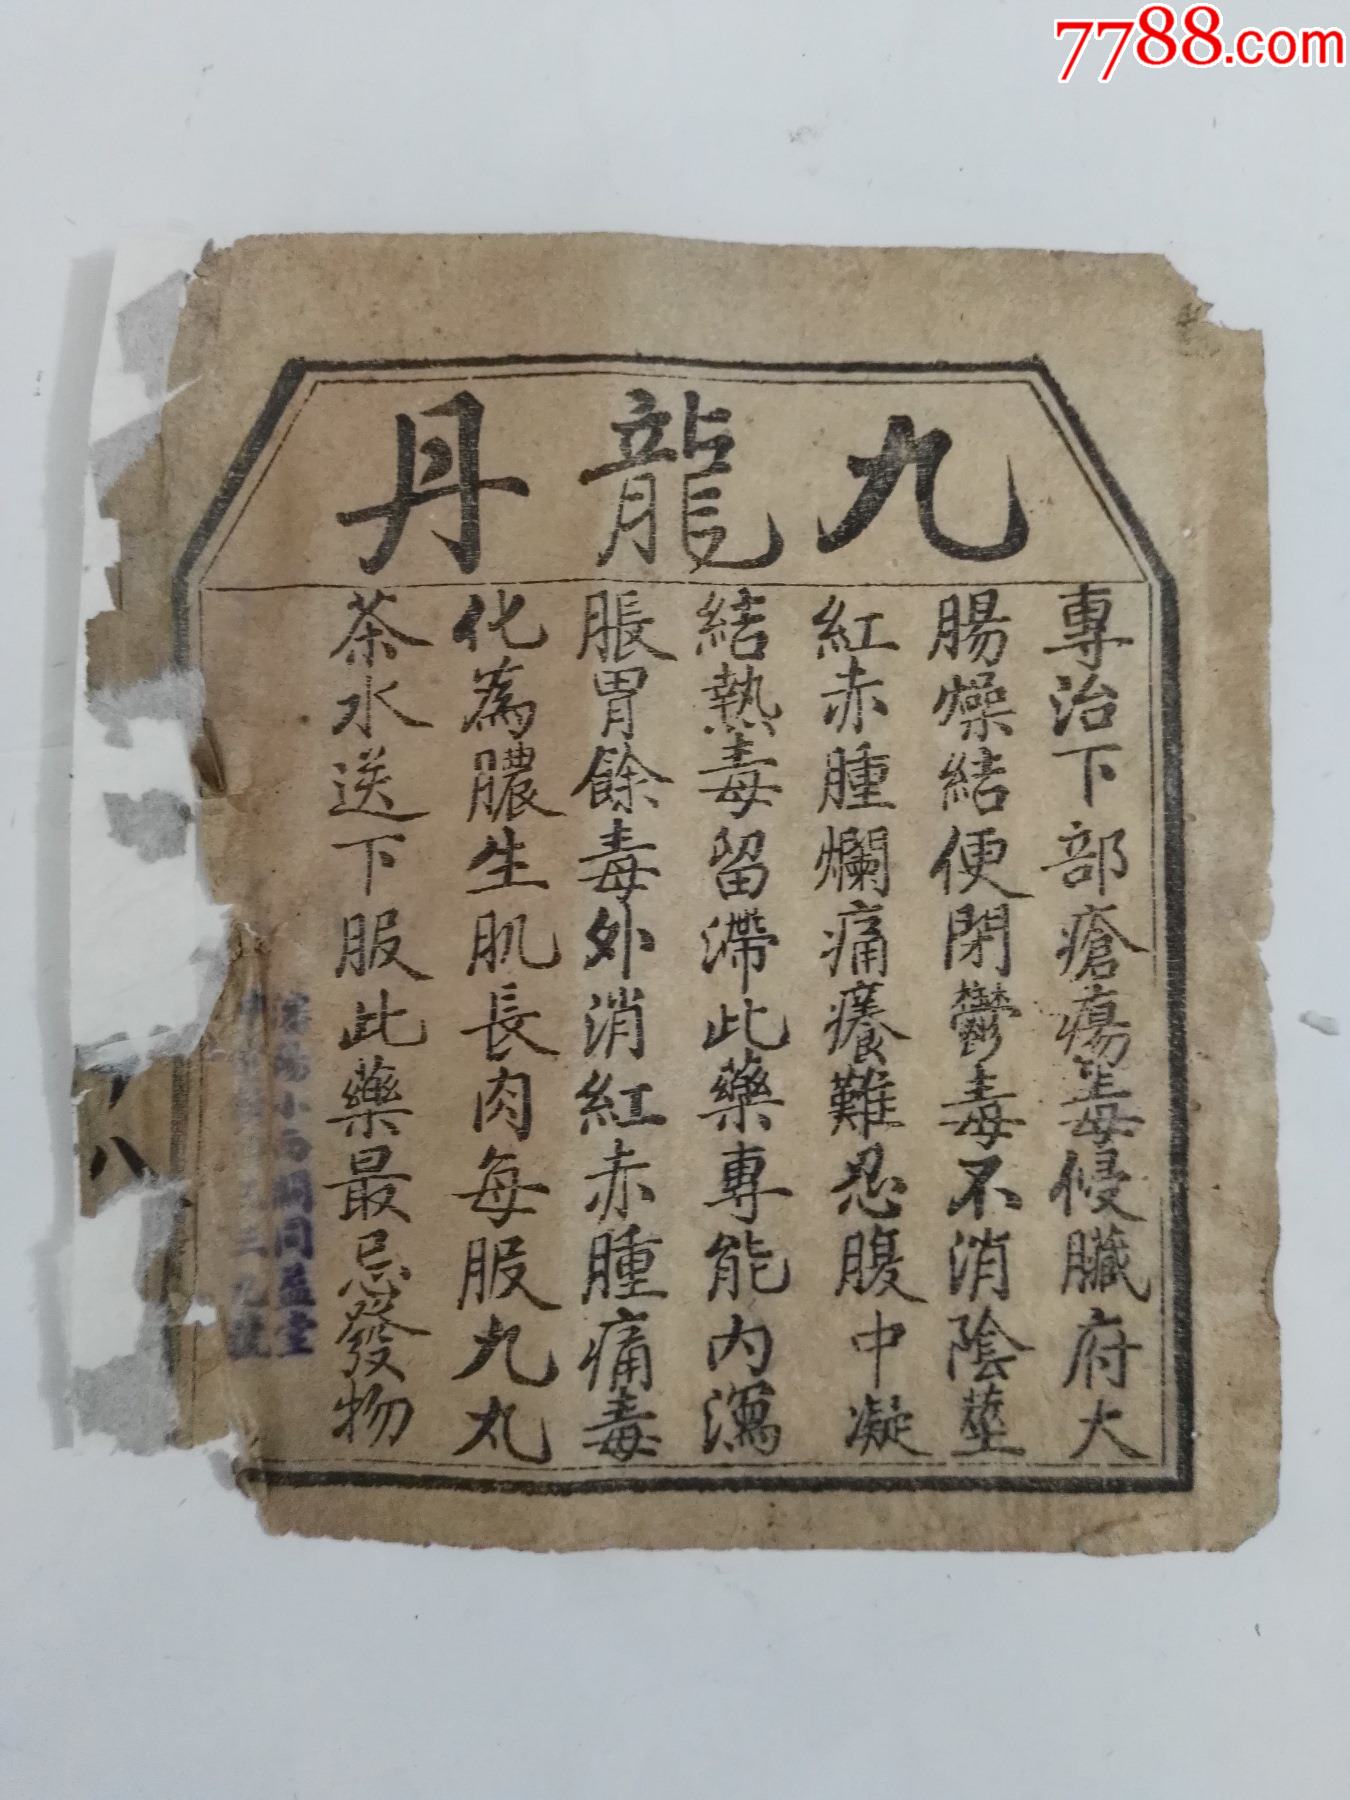 7788.com
九龍丹
專治下部瘡瘍毒侵臟府大
腸燥結便閉鬱毒不消陰莖
紅赤腫爛痛癢難忍腹中凝
結熱毒留滯此藥專能內瀉
脹胃餘毒外消紅赤腫痛毒
化為膿生肌長肉每服九丸
茶水送下服此藥最忌發物
瀋陽小西關同益堂
三九號
八